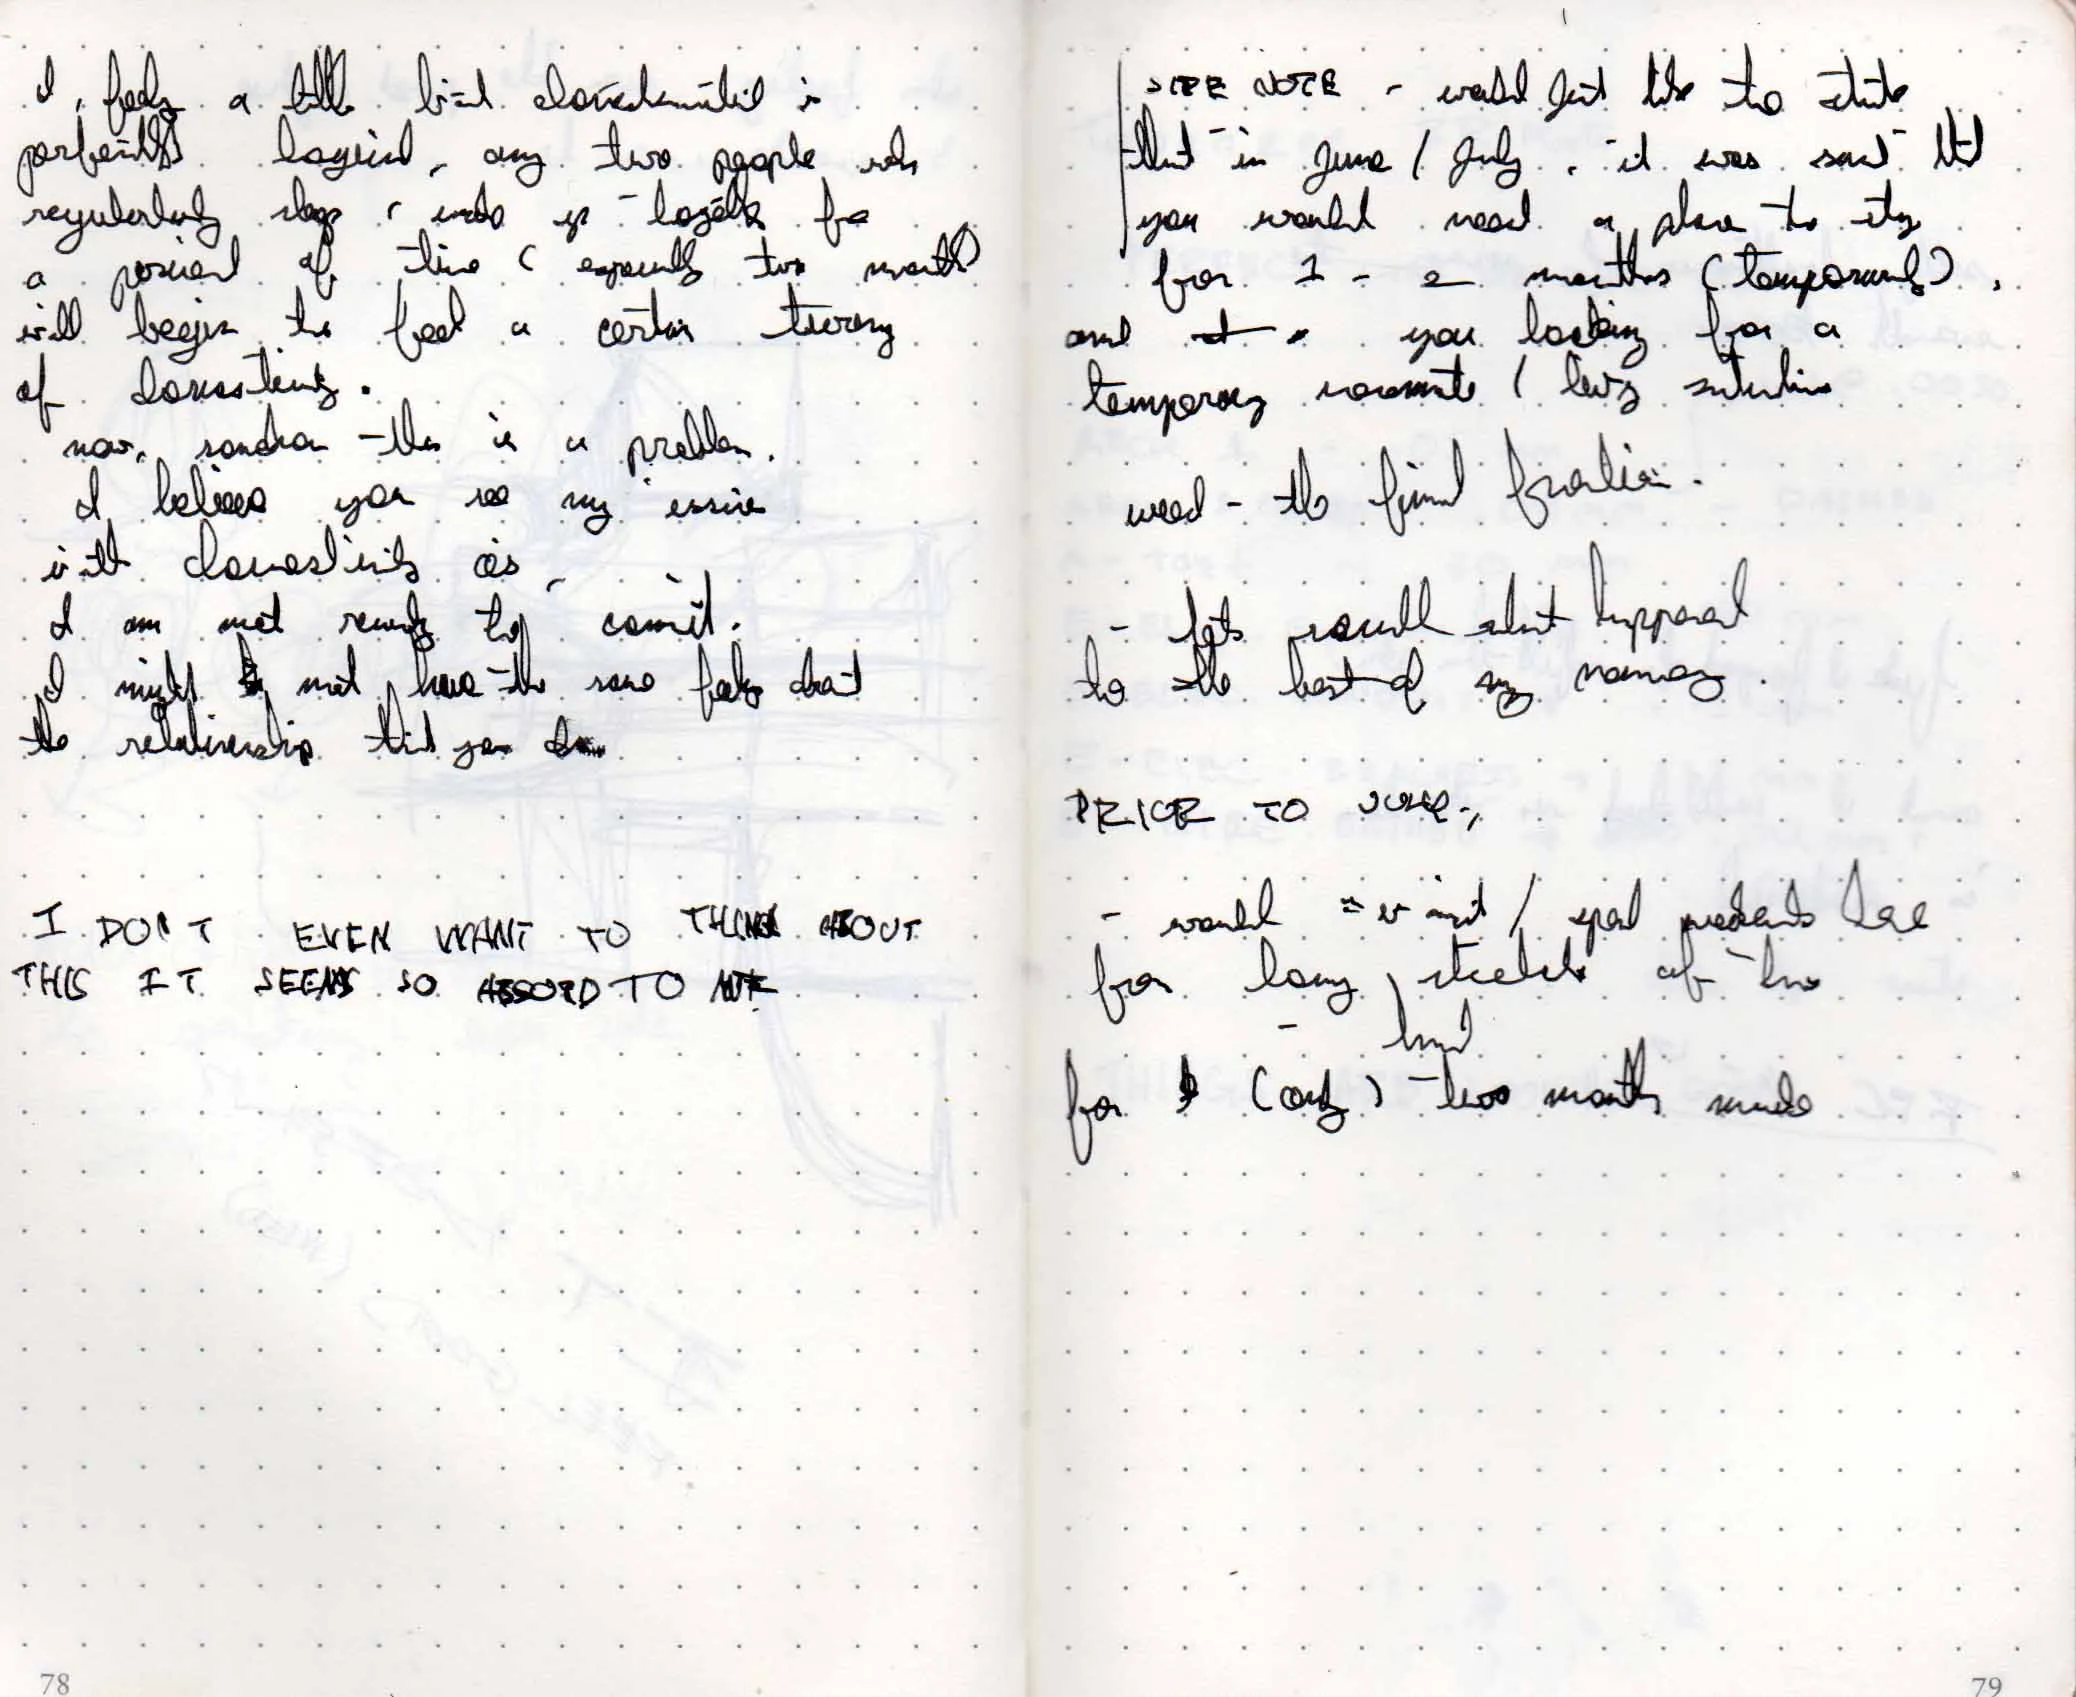 I, feeling a little bit domesticated is
perfectly logical, any two people who
regularly sleep, wake up together for
a period of time (especially two months)
will begin to feel a certain
of domesticity.
now, this is a problem.
I believe you see my issue
with domesticity as,
I am not ready to commit.
I might not have the same feelings about
the relationship that you do
I DON'T EVEN WANT TO THINK ABOUT
THIS IT SEEMS SO ABSURD TO ME
78
SIDE NOTE - would just like to state
that in June / July, it was said that
you would need a place to stay
for 1 - 2 months (temporarily),
and you looking for a
temporary roommate / living situation
weed - the final frontier.
- lets recall what happened
to the best of my memory.
PRIOR TO JUNE,
- would visit / spend weekends here
for long stretches of time
-
for (only) two months
79